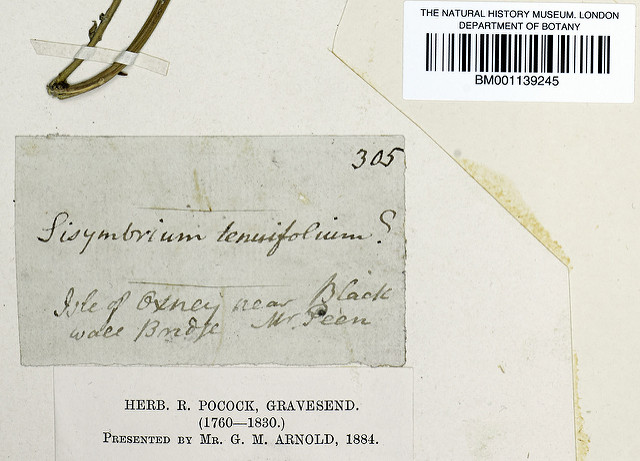 THE NATURAL HISTORY MUSEUM. LONDON
DEPARTMENT OF BOTANY
BM001139245
305
Sisymbrium tenuifolium?
Isle of Oxney near Black
wall Bridge Mr. Peen
HERB. R. POCOCK, GRAVESEND.
(1760—1830.)
PRESENTED BY MR. G. M. ARNOLD, 1884.